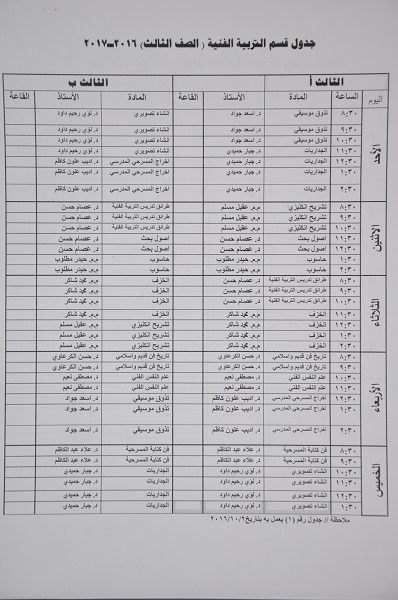 جدول قسم التربية الفنية ( الصف الثالث ) ٢٠١٦-٢٠١٧
الثالث أ الثالث ب
اليوم الساعة المادة الأستاذ القاعة المادة الأستاذ القاعة
الأحد
٨:٣٠ تذوق موسيقي د. اسعد جواد انشاء تصويري د. لؤي رحيم داود
٩:٣٠ تذوق موسيقي د. اسعد جواد انشاء تصويري د. لؤي رحيم داود
١٠:٣٠ تذوق موسيقي د. اسعد جواد انشاء تصويري د. لؤي رحيم داود
١١:٣٠ الجداريات د. جبار حميدي انشاء تصويري د. لؤي رحيم داود
١٢:٣٠ الجداريات د. جبار حميدي اخراج المسرحي المدرسي د. اديب علون كاظم
١:٣٠ الجداريات د. جبار حميدي اخراج المسرحي المدرسي د. اديب علون كاظم
٢:٣٠ الجداريات د. جبار حميدي اخراج المسرحي المدرسي د. اديب علون كاظم
الاثنين
٨:٣٠ تشريح انكليزي م.م. عقيل مسلم طرائق تدريس التربية الفنية د. عصام حسن
٩:٣٠ تشريح انكليزي م.م. عقيل مسلم طرائق تدريس التربية الفنية د. عصام حسن
١٠:٣٠ تشريح انكليزي م.م. عقيل مسلم طرائق تدريس التربية الفنية د. عصام حسن
١١:٣٠ اصول بحث د. عصام حسن اصول بحث د. عصام حسن
١٢:٣٠ اصول بحث د. عصام حسن اصول بحث د. عصام حسن
١:٣٠ حاسوب م.م. حيدر مطلوب حاسوب م.م. حيدر مطلوب
٢:٣٠ حاسوب م.م. حيدر مطلوب حاسوب م.م. حيدر مطلوب
الثلاثاء
٨:٣٠ طرائق تدريس التربية الفنية د. عصام حسن الخزف م.م. محمد شاكر
٩:٣٠ طرائق تدريس التربية الفنية د. عصام حسن الخزف م.م. محمد شاكر
١٠:٣٠ طرائق تدريس التربية الفنية د. عصام حسن الخزف م.م. محمد شاكر
١١:٣٠ الخزف م.م. محمد شاكر الخزف م.م. محمد شاكر
١٢:٣٠ الخزف م.م. محمد شاكر تشريح انكليزي م.م. عقيل مسلم
١:٣٠ الخزف م.م. محمد شاكر تشريح انكليزي م.م. عقيل مسلم
٢:٣٠ الخزف م.م. محمد شاكر تشريح انكليزي م.م. عقيل مسلم
الأربعاء
٨:٣٠ تاريخ فن قديم واسلامي د. حسن الكرعاوي تاريخ فن قديم واسلامي د. حسن الكرعاوي
٩:٣٠ تاريخ فن قديم واسلامي د. حسن الكرعاوي تاريخ فن قديم واسلامي د. حسن الكرعاوي
١٠:٣٠ علم النفس الفني د. مصطفى نعيم علم النفس الفني د. مصطفى نعيم
١١:٣٠ علم النفس الفني د. مصطفى نعيم علم النفس الفني د. مصطفى نعيم
١٢:٣٠ اخراج المسرحي المدرسي د. اديب علون كاظم تذوق موسيقي د. اسعد جواد
١:٣٠ اخراج المسرحي المدرسي د. اديب علون كاظم تذوق موسيقي د. اسعد جواد
٢:٣٠ اخراج المسرحي المدرسي د. اديب علون كاظم تذوق موسيقي د. اسعد جواد
الخميس
٨:٣٠ فن كتابة المسرحية د. علاء عبد الكاظم فن كتابة المسرحية د. علاء عبد الكاظم
٩:٣٠ فن كتابة المسرحية د. علاء عبد الكاظم فن كتابة المسرحية د. علاء عبد الكاظم
١٠:٣٠ انشاء تصويري د. لؤي رحيم داود الجداريات د. جبار حميدي
١١:٣٠ انشاء تصويري د. لؤي رحيم داود الجداريات د. جبار حميدي
١٢:٣٠ انشاء تصويري د. لؤي رحيم داود الجداريات د. جبار حميدي
١:٣٠ انشاء تصويري د. لؤي رحيم داود الجداريات د. جبار حميدي
ملاحظة // جدول رقم (١) يعمل به بتاريخ ٢٠١٦/١٠/٢